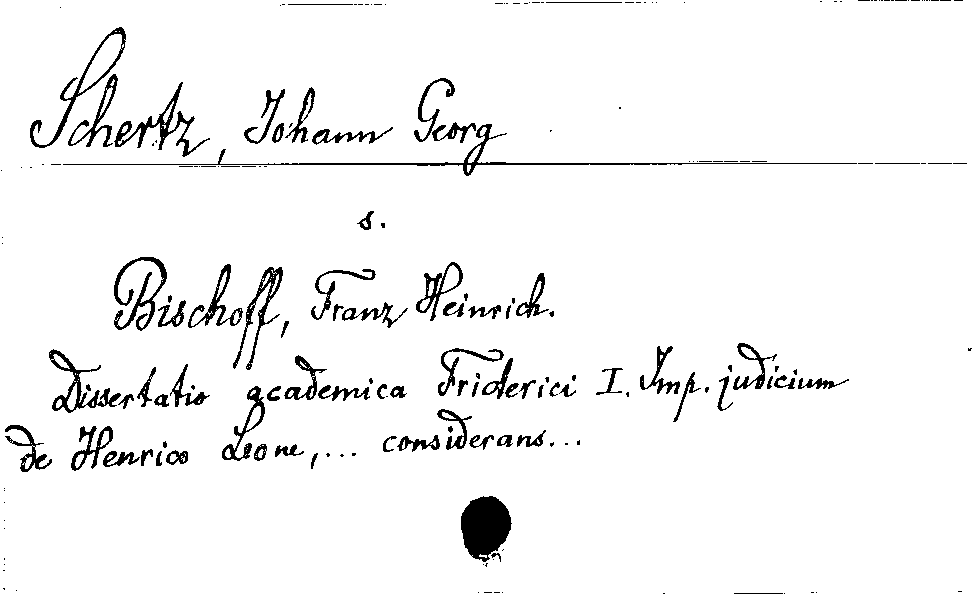 Schertz, Johann Georg
s.
Bischoff, Franz Heinrich.
Dissertatio academica Friderici I. Imp. judicium
de Henrico Leone,... considerans...